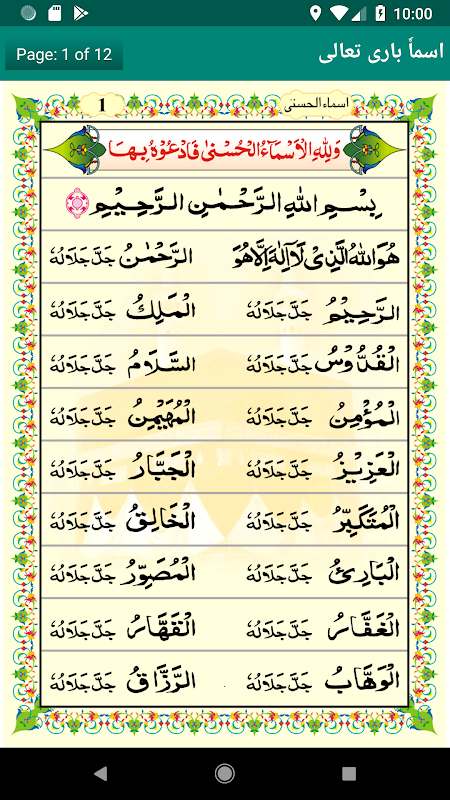 10:00
Page: 1 of 12
اسمأ باری تعالی
اسماء الحسنى
1
وَلِلّٰهِ الْاَسْمَآءُ الْحُسْنٰى فَادْعُوْهُ بِهَا
بِسْمِ اللّٰهِ الرَّحْمٰنِ الرَّحِيْمِ
هُوَ اللّٰهُ الَّذِىْ لَآ اِلٰهَ اِلَّا هُوَ الرَّحْمٰنُ جَلَّ جَلَالُهٗ
الرَّحِيْمُ جَلَّ جَلَالُهٗ الْمَلِكُ جَلَّ جَلَالُهٗ
الْقُدُّوْسُ جَلَّ جَلَالُهٗ السَّلَامُ جَلَّ جَلَالُهٗ
الْمُؤْمِنُ جَلَّ جَلَالُهٗ الْمُهَيْمِنُ جَلَّ جَلَالُهٗ
الْعَزِيْزُ جَلَّ جَلَالُهٗ الْجَبَّارُ جَلَّ جَلَالُهٗ
الْمُتَكَبِّرُ جَلَّ جَلَالُهٗ الْخَالِقُ جَلَّ جَلَالُهٗ
الْبَارِئُ جَلَّ جَلَالُهٗ الْمُصَوِّرُ جَلَّ جَلَالُهٗ
الْغَفَّارُ جَلَّ جَلَالُهٗ الْقَهَّارُ جَلَّ جَلَالُهٗ
الْوَهَّابُ جَلَّ جَلَالُهٗ الرَّزَّاقُ جَلَّ جَلَالُهٗ